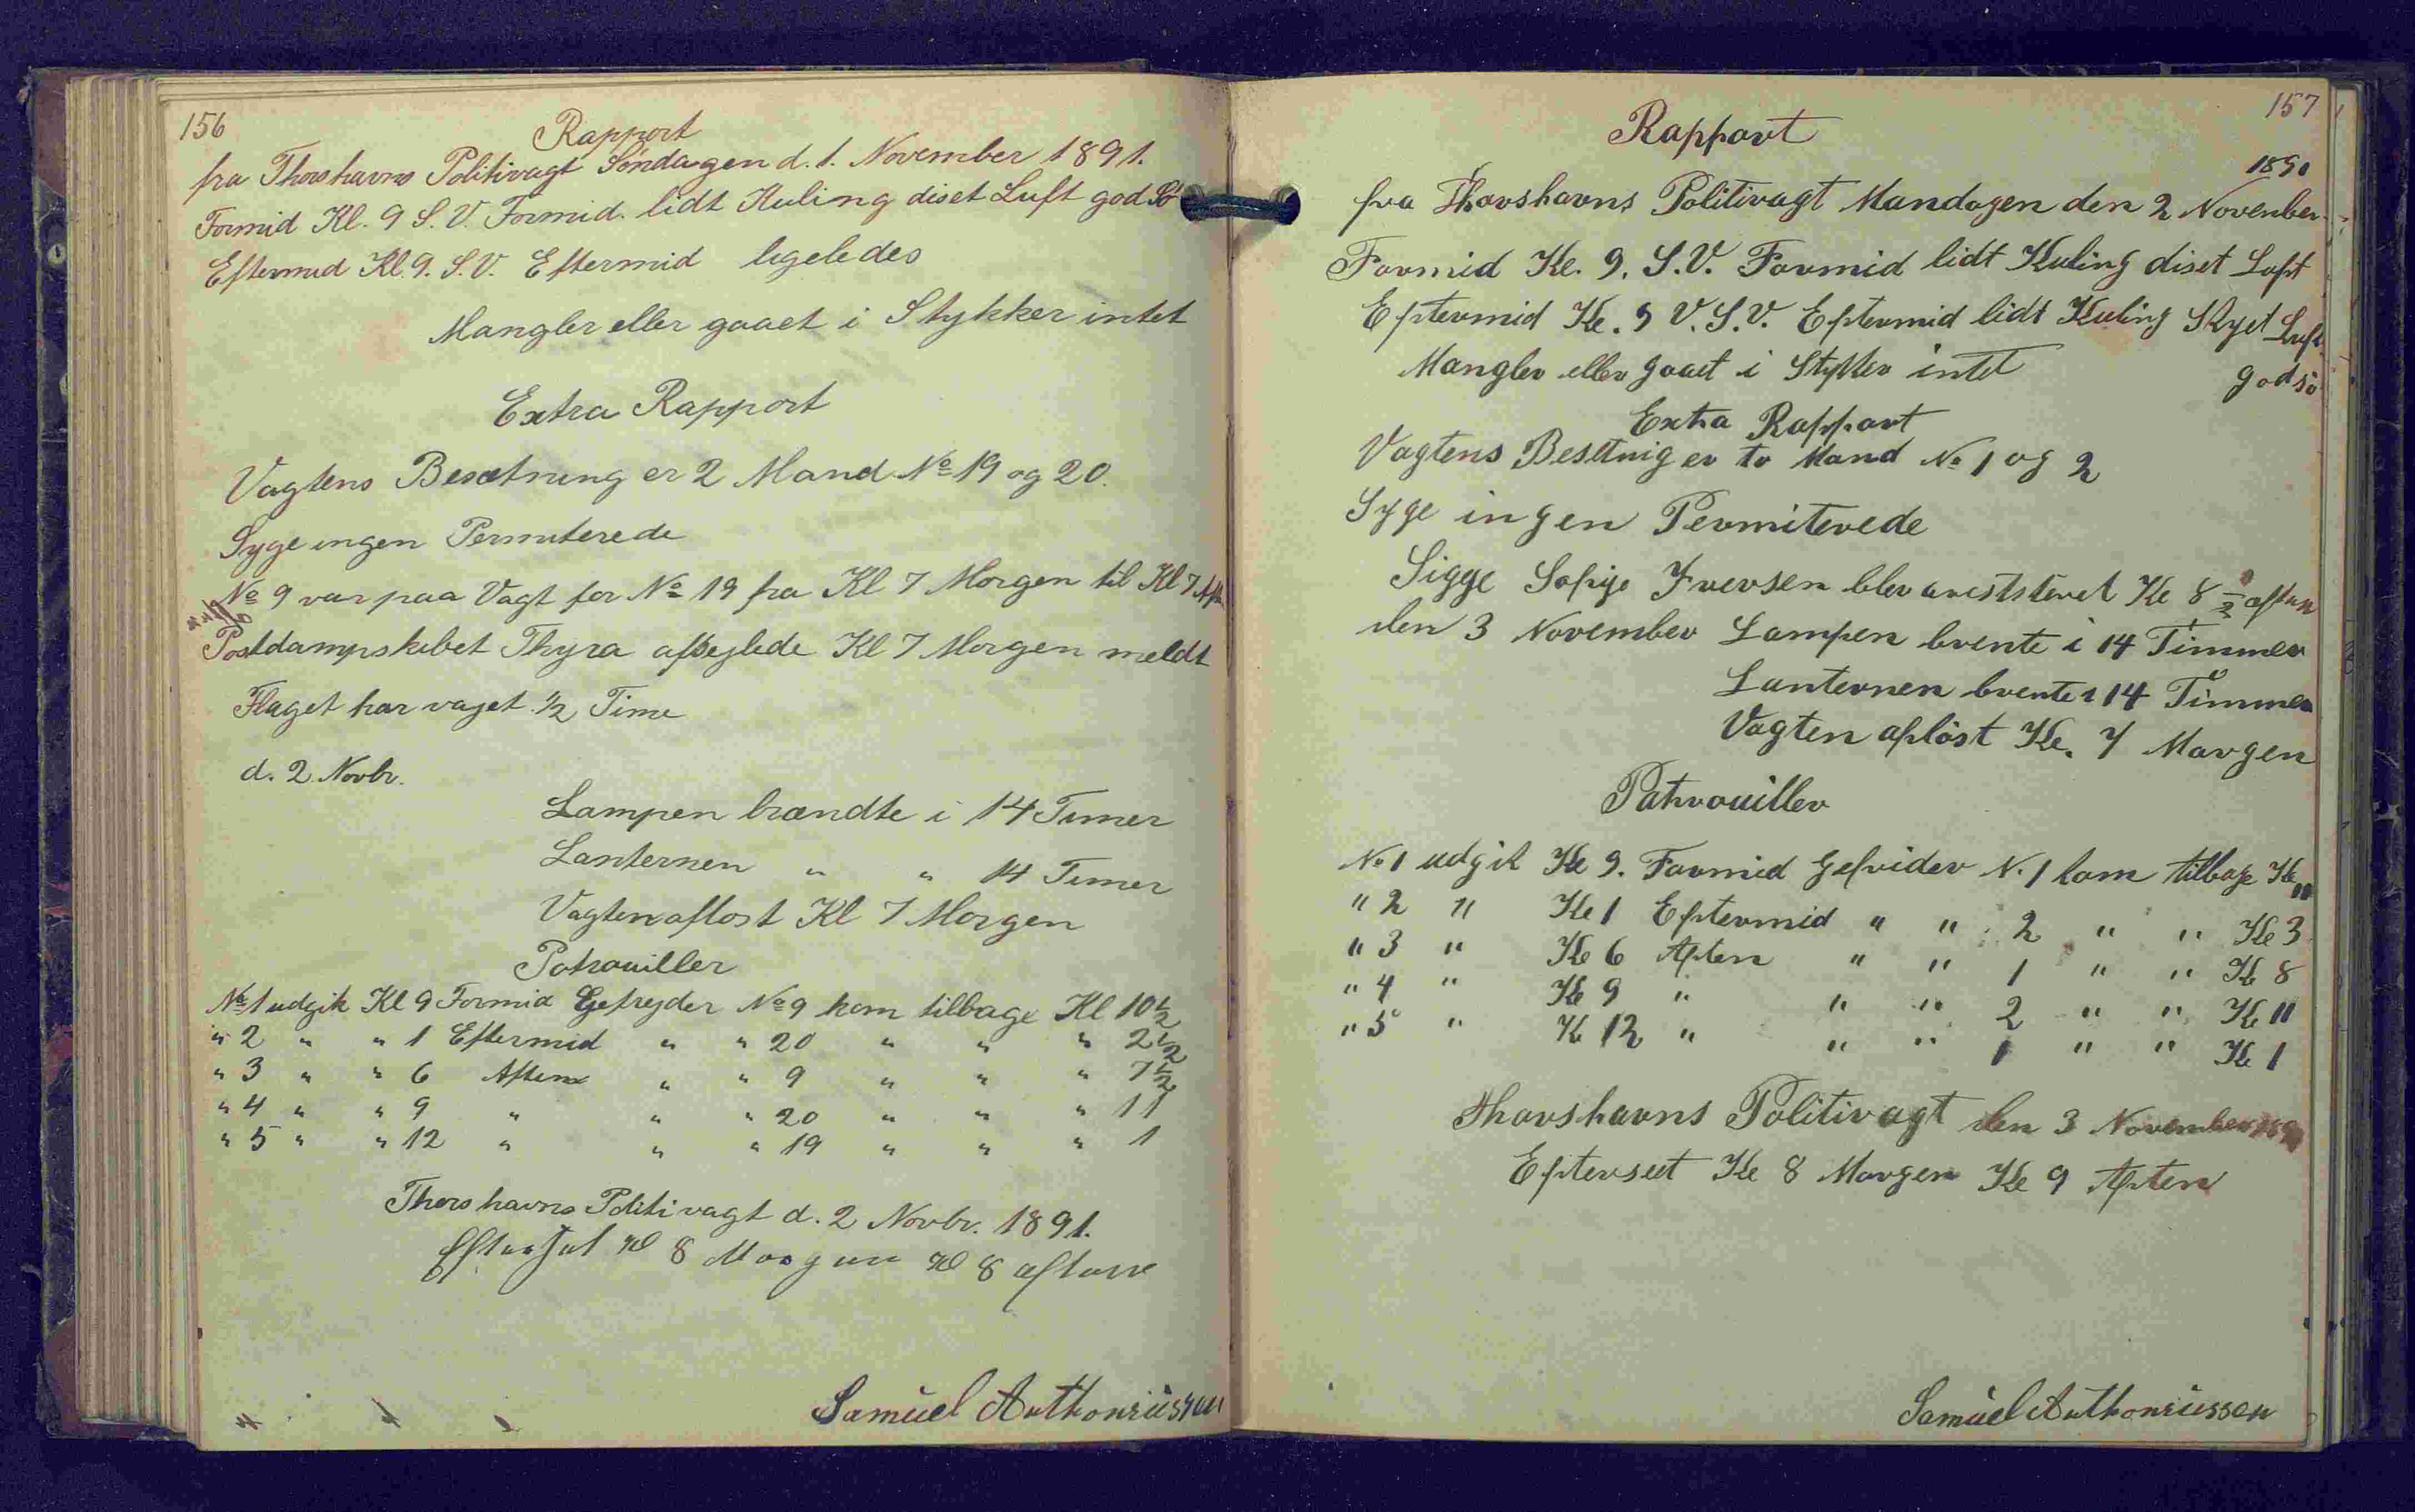 156
Rapport
fra Thorshavns Politivagt Söndagen d. 1. November 1891.
Formid Kl. 9 S. V. Formid. lidt Kuling diset Luft god Sö
Eftermid Kl. 9. S. V. Eftermid ligeledes
Mangler eller gaaet i Stykker intet
Extra Rapport
Vagtens Besætning er 2 Mand No 19 og 20.
Syge ingen Permiterede
No 9 var paa Vagt for No 19 fra Kl 7 Morgen til Kl 7 Aft
Postdampskibet Thyra afseglede Kl 7 Morgen meldt
Flaget har vajet 1/2 Time
d. 2 Novbr.
Lampen brændte i 14 Timer
Lanternen " " 14 Timer
Vagten aflost Kl 7 Morgen
Patrouiller
No 1 udgik Kl 9 Formid Gefrejder No 9 kom tilbage Kl 10 1/2
" 2 " " 1 Eftermid " " 20 " " " 2 1/2
" 3 " " 6 Aften " " 9 " " " 7 1/2
" 4 " " 9 " " " 20 " " " 11
" 5 " " 12 " " " 19 " " " 1
Thorshavns Politivagt d. 2 Novbr. 1891.
Kl 8 Morgen Kl 8 aften
Samuel Anthoniussen
157
Rapport
1891
fra Thorshavns Politivagt Mandagen den 2 November
Formid Kl. 9. S. V. Formid lidt Kuling diset Loft
Eftermid Kl. 9 V. S. V. Eftermid lidt Kuling Skyet Luft
Mangler eller gaaet i Stykker intet god sö
Extra Rapport
Vagtens Besetnig er to Mand No 1 og 2
Syge ingen Permiterede
Sigge Sofije Iversen blev areststeret Kl 8 1/2 aften
den 3 November Lampen brente i 14 Timmer
Lanternen brente i 14 Timmer
Vagten aflöst Kl. 7 Morgen
Patrouiller
No 1 udgik Kl 9. Formid Gefreider N. 1 kom tilbage Kl 11
" 2 " Kl 1 Eftermid " " 2 " " Kl 3
" 3 " Kl 6 Aften " " 1 " " Kl 8
" 4 " Kl 9 " " " 2 " " Kl 11
" 5 " Kl 12 " " " 1 " " Kl 1
Thorshavns Politivagt den 3 November 1891
Efterseet Kl 8 Morgen Kl 9 Aften
Samuel Anthoniussen